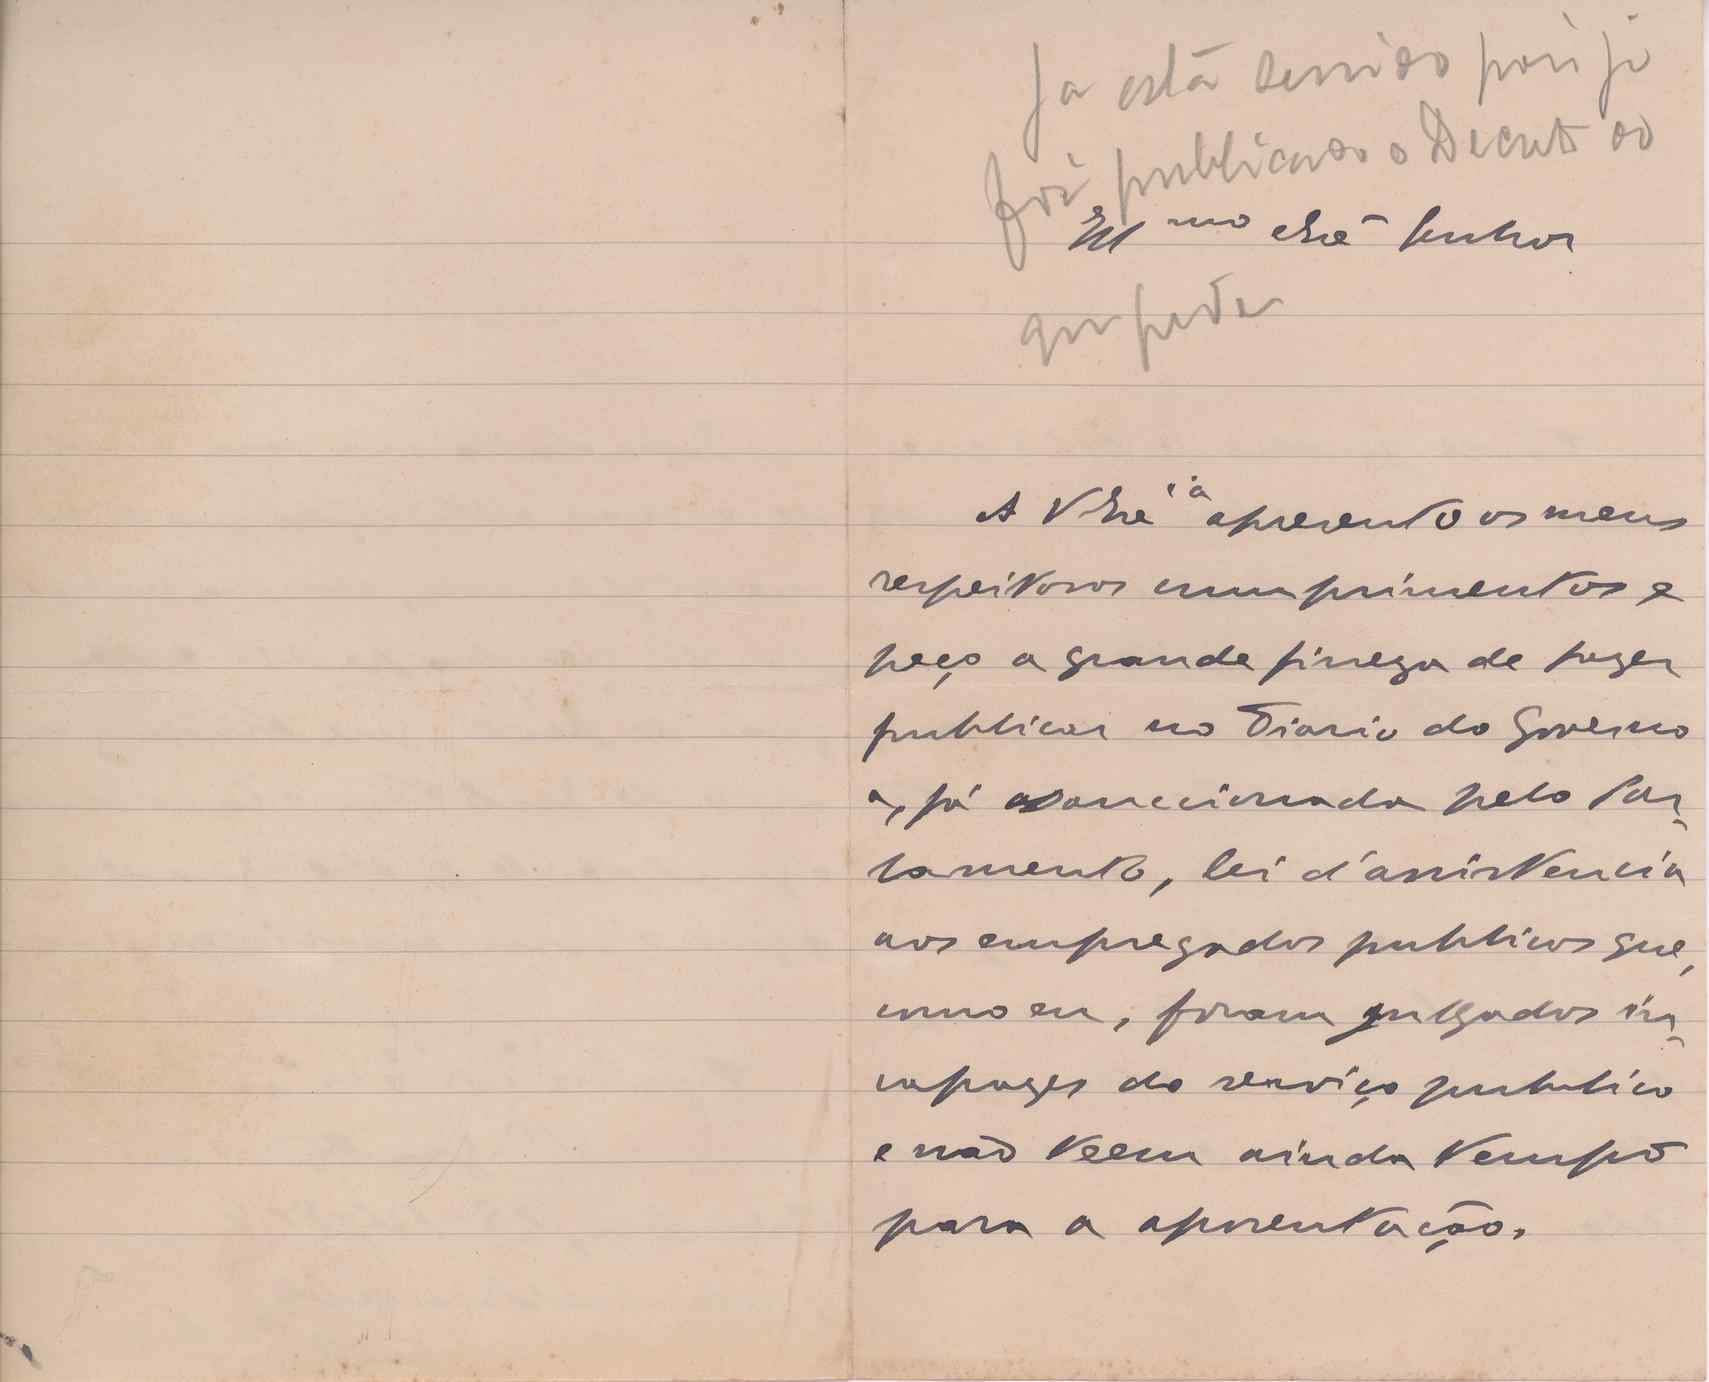 Ja está servido pois já
foi publicado o Decreto
Illmo Exmo Senhor
que pede
A V Excia apresento os meus
respeitosos cumprimentos e
peço a grande fineza de fazer
publicar no Diario do Governo
a, já sanccionada pelo Par-
lamento, lei d'assistencia
aos empregados publicos que,
como eu, foram julgados in-
capazes do serviço publico
e não teem ainda tempo
para a aposentação.